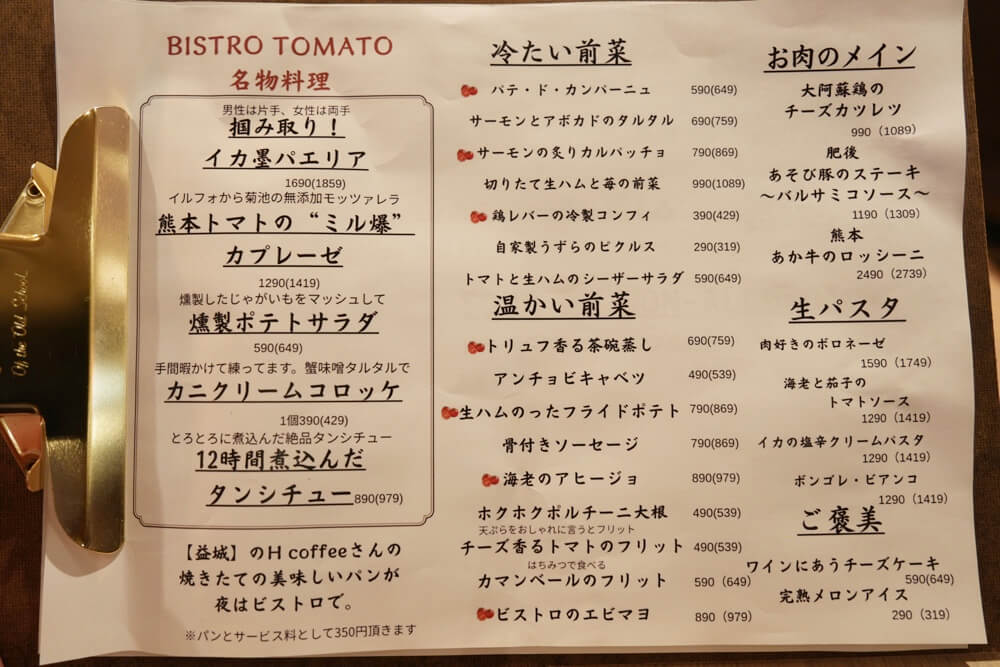 Of the Old School.
BISTRO TOMATO
名物料理
男性は片手、女性は両手
掴み取り！
イカ墨パエリア
1690(1859)
イルフォから菊池の無添加モッツァレラ
熊本トマトの“ミル爆”
カプレーゼ
1290(1419)
燻製したじゃがいもをマッシュして
燻製ポテトサラダ
590(649)
手間暇かけて練ってます。蟹味噌タルタルで
カニクリームコロッケ
1個390(429)
とろとろに煮込んだ絶品タンシチュー
12時間煮込んだ
タンシチュー890(979)
【益城】のH coffeeさんの
焼きたての美味しいパンが
夜はビストロで。
※パンとサービス料として350円頂きます
冷たい前菜
パテ・ド・カンパーニュ 590(649)
サーモンとアボカドのタルタル 690(759)
サーモンの炙りカルパッチョ 790(869)
切りたて生ハムと苺の前菜 990(1089)
鶏レバーの冷製コンフィ 390(429)
自家製うずらのピクルス 290(319)
トマトと生ハムのシーザーサラダ 590(649)
温かい前菜
トリュフ香る茶碗蒸し 690(759)
アンチョビキャベツ 490(539)
生ハムのったフライドポテト 790(869)
骨付きソーセージ 790(869)
海老のアヒージョ 890(979)
ホクホクポルチーニ大根 490(539)
天ぷらをおしゃれに言うとフリット
チーズ香るトマトのフリット 490(539)
はちみつで食べる
カマンベールのフリット 590（649)
ビストロのエビマヨ 890（979)
お肉のメイン
大阿蘇鶏の
チーズカツレツ
990（1089）
肥後
あそび豚のステーキ
～バルサミコソース～
1190（1309）
熊本
あか牛のロッシーニ
2490（2739）
生パスタ
肉好きのボロネーゼ
1590（1749）
海老と茄子の
トマトソース
1290（1419）
イカの塩辛クリームパスタ
1290（1419）
ボンゴレ・ビアンコ
1290（1419）
ご褒美
ワインにあうチーズケーキ
590(649)
完熟メロンアイス
290（319）